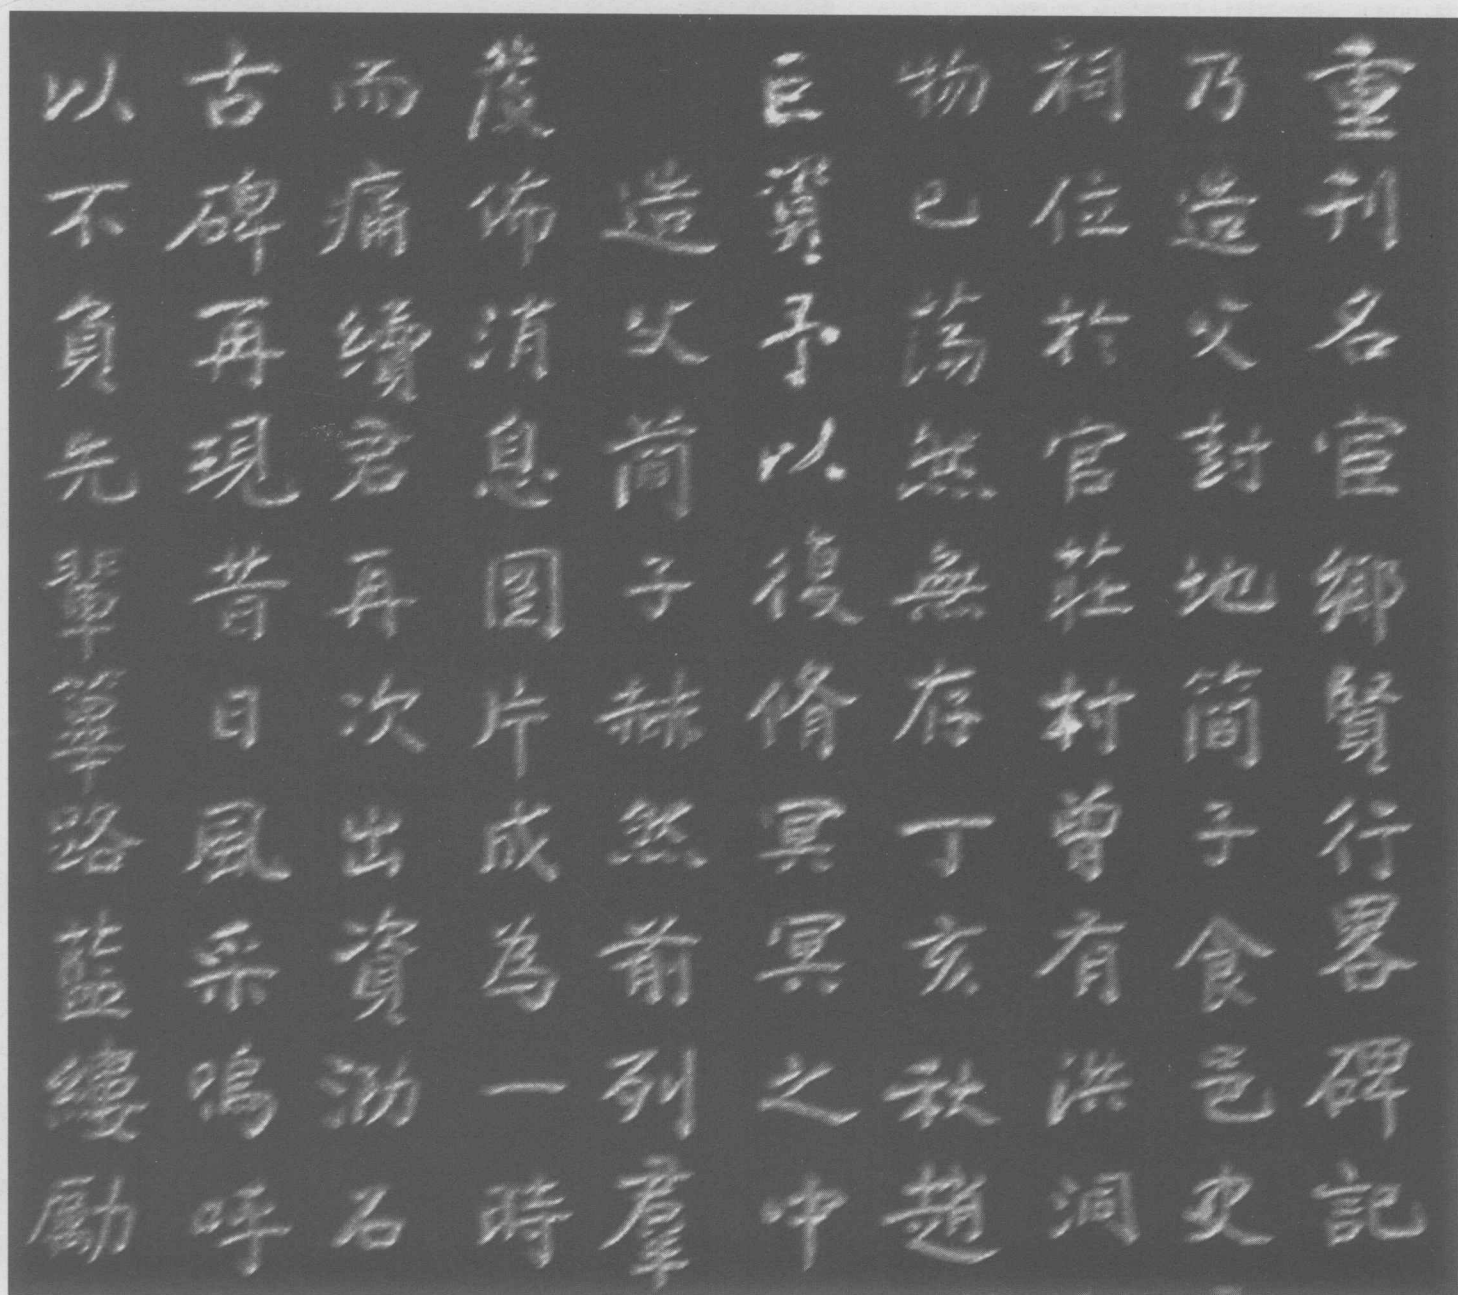 重刊名宦鄉賢行畧碑記
乃造父封地簡子食邑史
祠位於官莊村曾有洪洞
物已蕩然無存丁亥秋趙
巨資予以復脩冥冥之中
造父簡子赫然前列羣
後佈消息圖片成為一時
而痛續君再次出資泐石
古碑再現昔日風采嗚呼
以不負先輩篳路藍縷勵